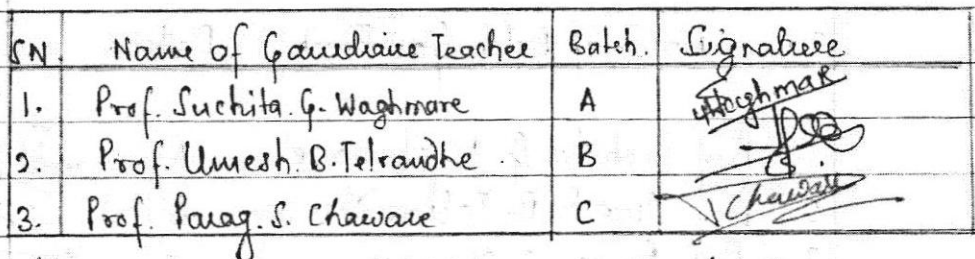 SN. Name of Gaurdiane Teacher Batch. Signature
1. Prof. Suchita. G. Waghmare A Waghmare
2. Prof. Umesh. B. Telrandhe B
3. Prof. Parag. S. Chaware C Chaware